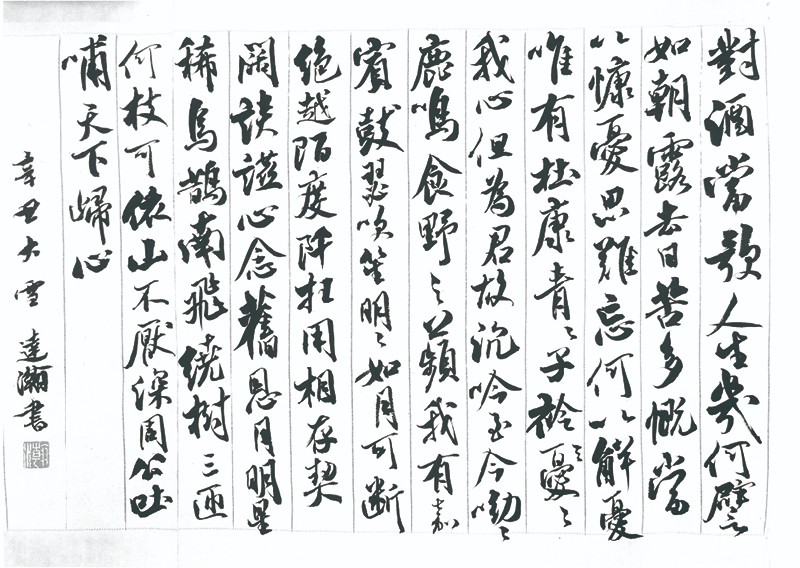 對酒當歌人生幾何譬
如朝露去日苦多慨當
以慷憂思難忘何以解憂
唯有杜康青〻子衿悠〻
我心但為君故沉吟至今呦〻
鹿鳴食野之蘋我有嘉
賓鼓瑟吹笙明〻如月可斷
絕越陌度阡枉用相存契
闊談讌心念舊恩月明星
稀烏鵲南飛繞樹三匝
何枝可依山不厭深周公吐
哺天下歸心
辛丑大雪 達瀚書